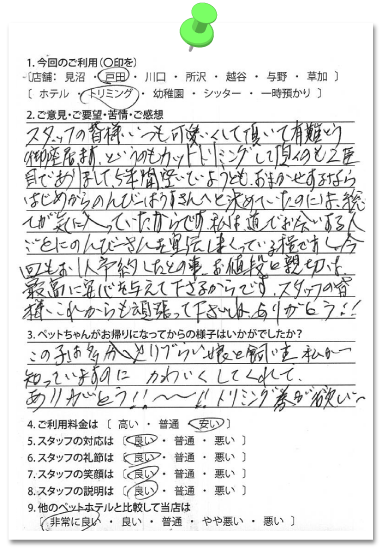 1. 今回のご利用(〇印を)
[店舗: 見沼 ・ 戸田 ・ 川口 ・ 所沢 ・ 越谷 ・ 与野 ・ 草加 ]
[ ホテル ・ トリミング ・ 幼稚園 ・ シッター ・ 一時預かり ]
2.ご意見・ご要望・苦情・ご感想
スタッフの皆様いつも可愛くして頂いて有難とう
御座居ます。というのもカットトリミングして頂くのも2匹
目でありまして5年間空いていようとも、おまかせするなら
はじめからのんびーりうすさんへと決めていたのには、総
てが気に入っていたからです。私は道でお会いする人
ごとにのんびーさんを宣伝しまくっている程です。今
回もお1人予約したとの事。お値段と親切、も
最高に安心を与えて下さるからです。スタッフの皆
様、これからも頑張って下さいね。ありがとう!!
3.ペットちゃんがお帰りになってからの様子はいかがでしたか?
この子は多分やりづらい娘と飼い主私が一
知っていますのに かわいくしてくれて、
ありがとう!!〜〜!! トリミング券が欲しい〜
4.ご利用料金は [ 高い ・ 普通 ・ 安い ]
5.スタッフの対応は [ 良い ・ 普通 ・ 悪い ]
6.スタッフの礼節は [ 良い ・ 普通 ・ 悪い ]
7.スタッフの笑顔は [ 良い ・ 普通 ・ 悪い ]
8.スタッフの説明は [ 良い ・ 普通 ・ 悪い ]
9.他のペットホテルと比較して当店は
[ 非常に良い ・ 良い ・ 普通 ・ やや悪い ・ 悪い ]